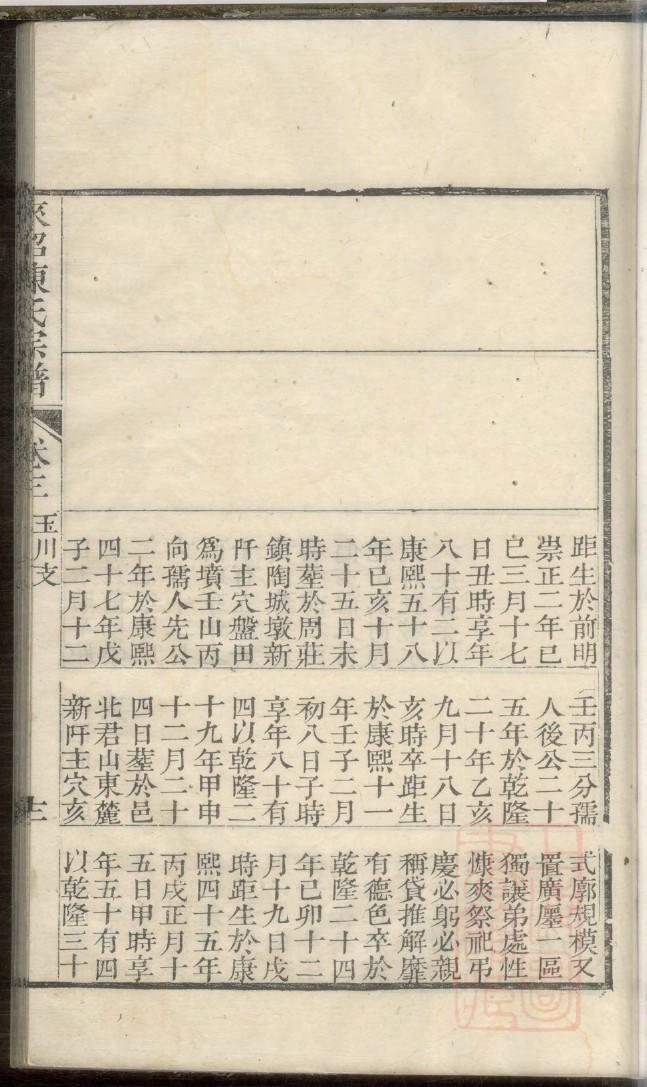 距生於前明
崇正二年己
巳三月十七
日丑時享年
八十有二以
康熙五十八
年己亥十月
二十五日未
時塟於周莊
鎮陶城墩新
阡主穴盤田
爲墳壬山丙
向孺人先公
二年於康熙
四十七年戊
子二月十二
壬丙三分孺
人後公二十
五年於乾隆
二十年乙亥
九月十八日
亥時卒距生
於康熙十一
年壬子二月
初八日子時
享年八十有
四以乾隆二
十九年甲申
十二月二十
四日塟於邑
北君山東麓
新阡主穴亥
式廓規模又
置廣屬一區
獨讓弟處性
慷爽祭祀弔
慶必躬必親
稱貸推解靡
有德色卒於
乾隆二十四
年己卯十二
月十九日戌
時距生於康
熙四十五年
丙戌正月十
五日甲時享
年五十有四
以乾隆三十
陳氏宗譜
卷三
玉川支